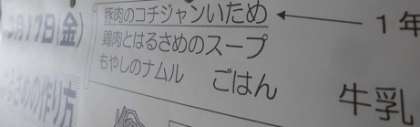 月17日(金)
豚肉のコチジャンいため
1年
鶏肉とはるさめのスープ
もやしのナムル ごはん
牛乳
の作り方